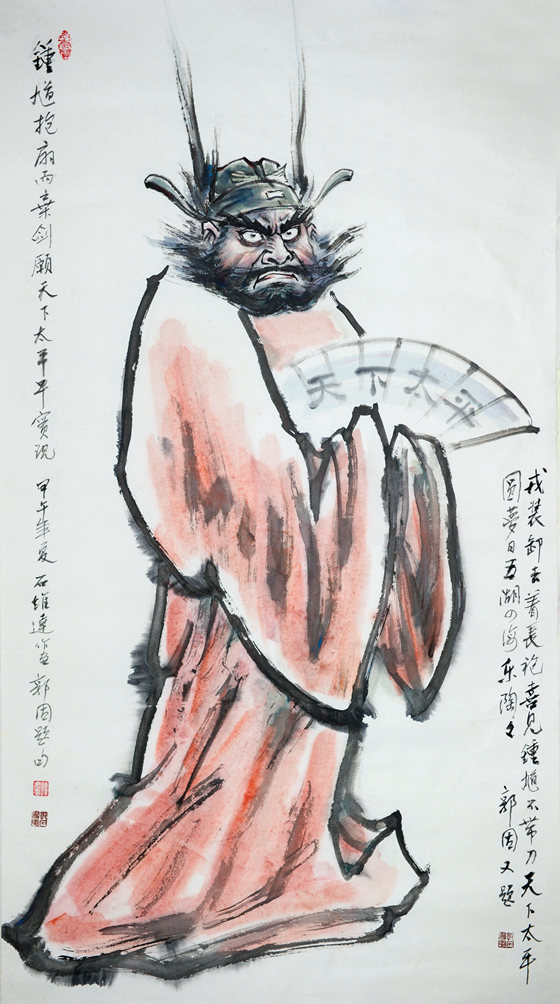 鍾馗抱扇而棄剑願天下太平早實现
甲午年夏石維達作画郭因题句
天下太平
戎装卸去着長袍喜见鍾馗不带刀天下太平
圆夢日五湖四海樂陶々
郭因又题